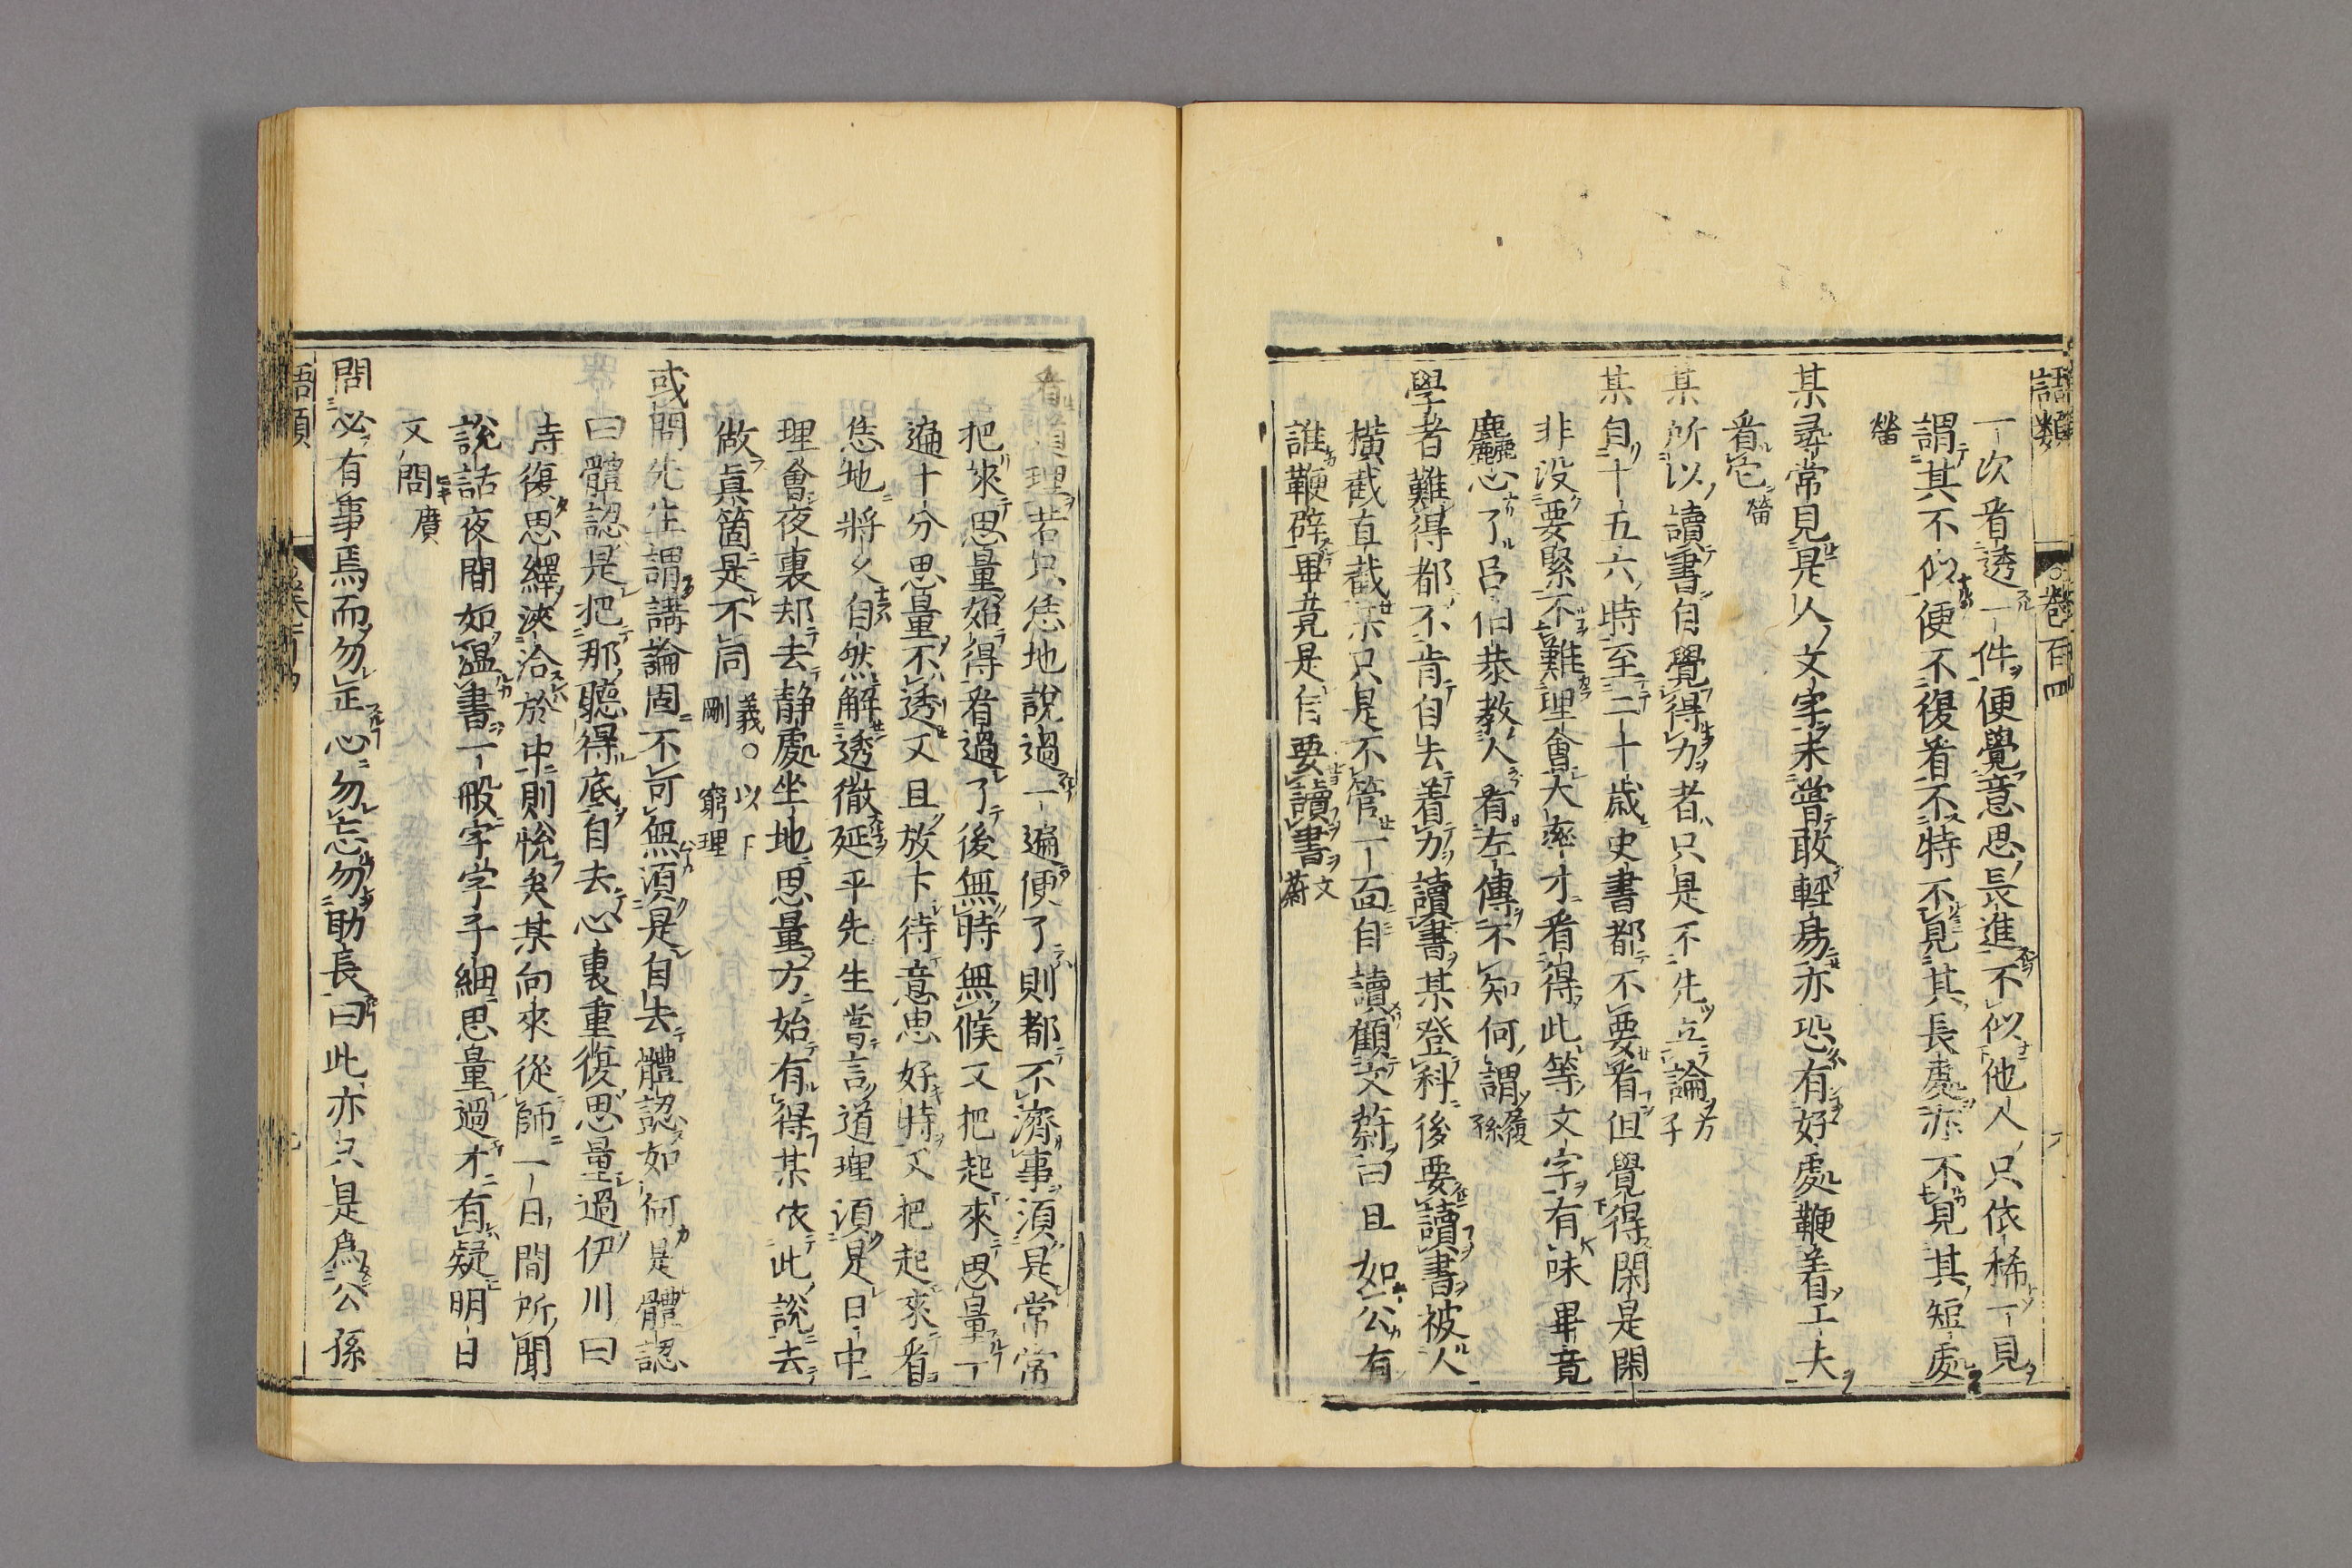 語類 卷百四
一次看透一件便覺意思長進不似他人只依稀一見
謂其不似便不復看不特不見其長處亦不見其短處
𤲞
某尋常見是人文字未嘗敢輕易亦恐有好處鞭着工夫
看它 𤲞
某所以讀書自覺得力者只是不先立論 方子
某自十五六時至二十歲史書都不要看但覺得閑是閑
非没要緊不難理會大率才看得此等文字有味畢竟
麤心了呂伯恭教人看左傳不知何謂 履孫
學者難得都不肯自去着力讀書某登科後要讀書被人
橫截直截某只是不管一面自讀顧文蔚曰且如公有
誰鞭辟畢竟是自要讀書 文蔚
看道理若只恁地說過一遍便了則都不濟事須是常常
把來思量始得看過了後無時無候又把起來思量一
遍十分思量不透又且放下待意思好時又把起來看
恁地將久自然解透徹延平先生嘗言道理須是日中
理會夜裏却去靜處坐地思量方始有得某依此說去
做眞箇是不同 義剛 ○以下窮理
或問先生謂講論固不可無須是自去體認如何是體認
曰體認是把那聽得底自去心裏重復思量過伊川曰
時復思繹浹洽於中則悅矣某向來從師一日間所聞
說話夜間如溫書一般字字子細思量過才有疑明日
又問 廣
問必有事焉而勿正心勿忘勿助長曰此亦只是爲公孫
語類